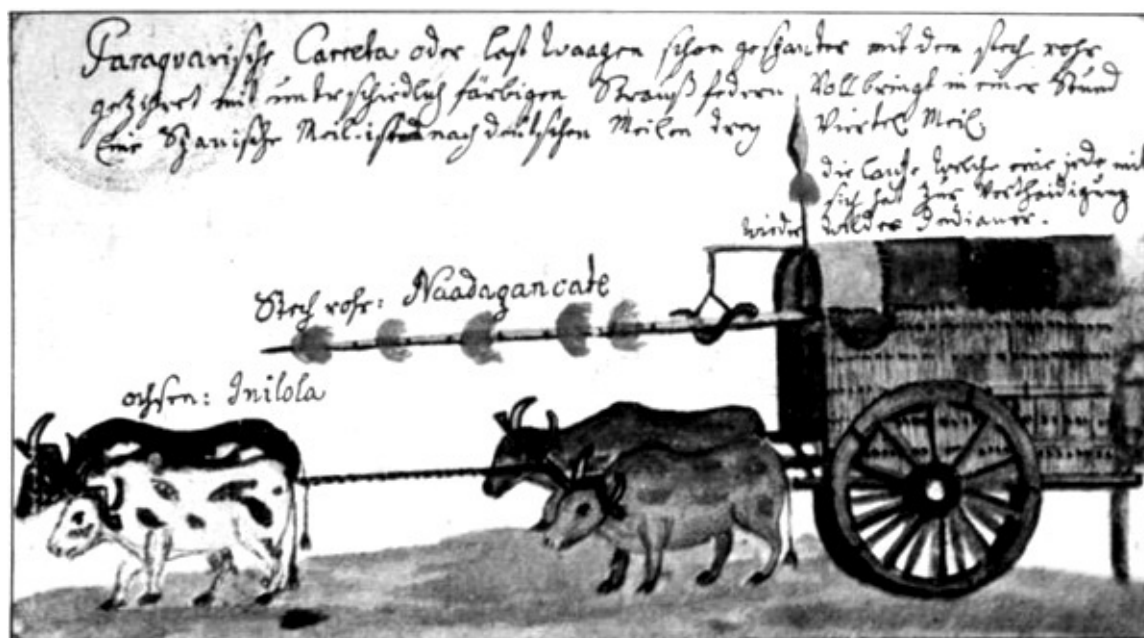 Paraquarische Carreta oder last waagen schon gespanter mit dem stech rohr
geziehret mit unterschiedlich färbigen Strauß federn Vollbringt in einer Stund
Eine Spanische Meil ist nach deutschen Meilen drey Viertel Meil.
die Lantze welche eine jede mit
sich hat zur Vertheidigung
wieder wilder Indianer.
Stech rohr: Naadagancate
ochsen: Inilola